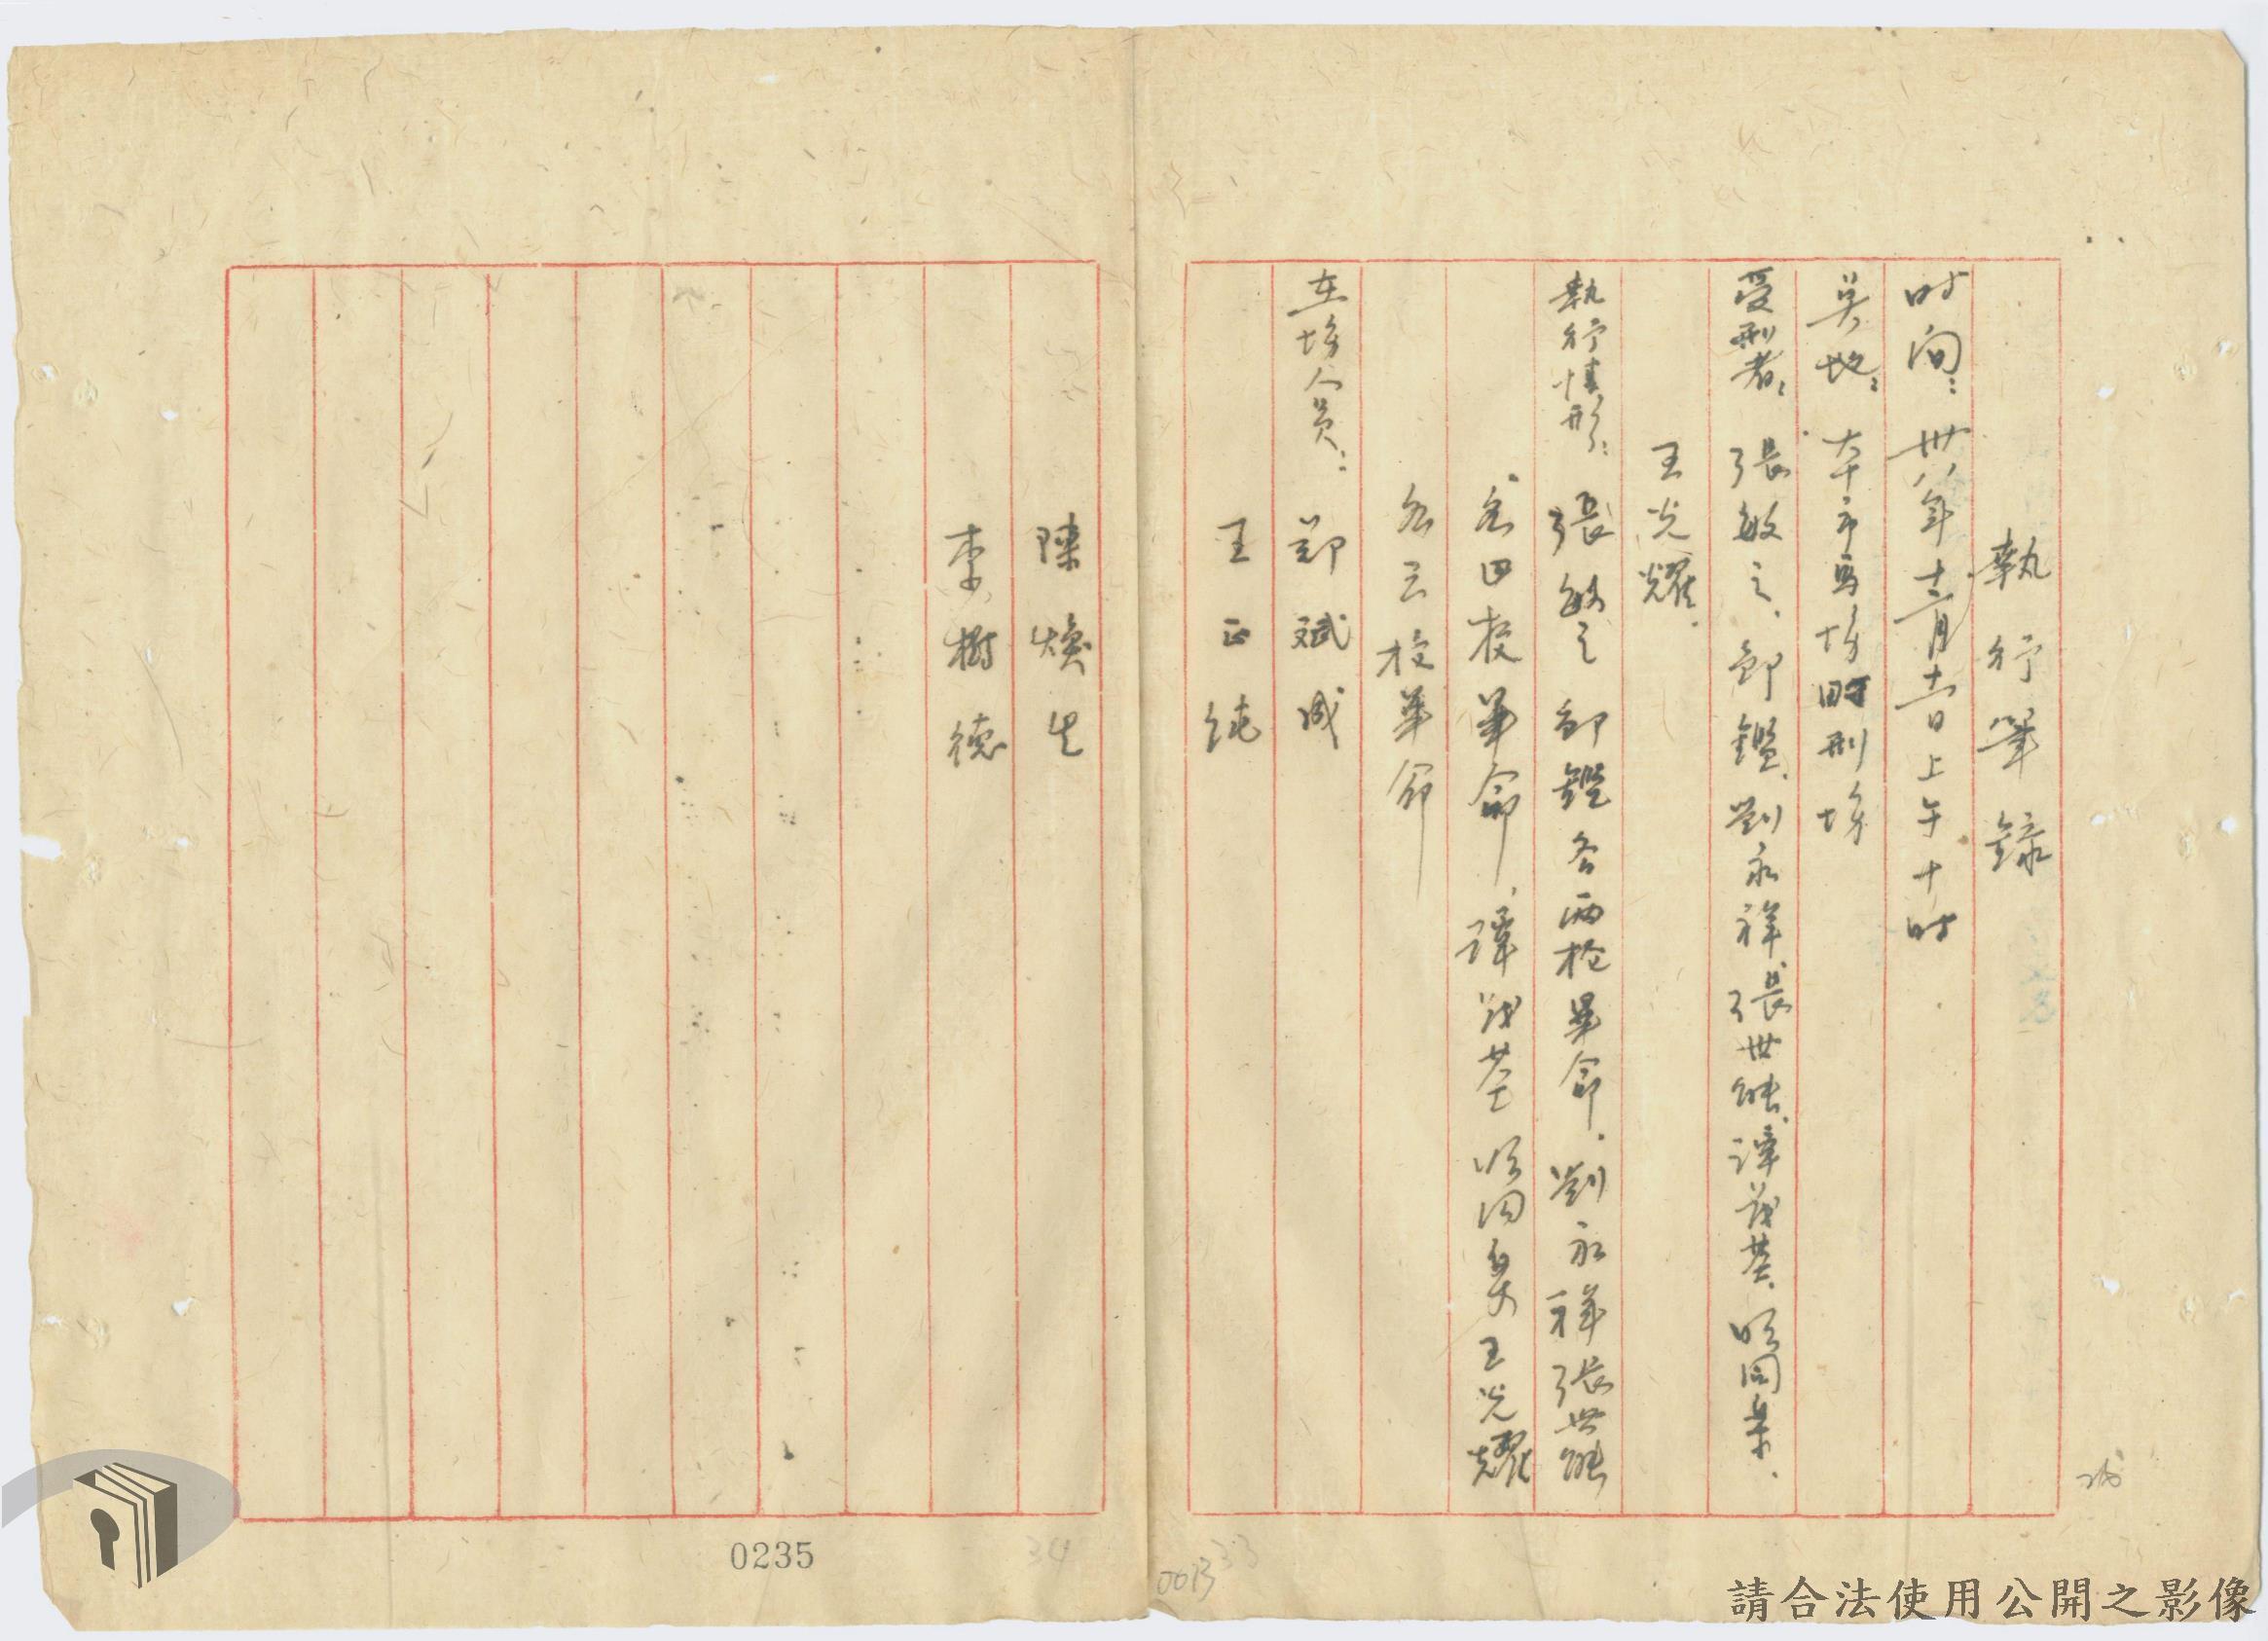 執行筆錄
时间：卅八年十二月十一日上午十时
吴地：本市馬場町刑場
受刑者：張敏之、鄒鑑、劉永祥、張世能、譚茂基、明同樂、
王光耀.
執行情形：張敏之 鄒鑑各兩槍畢命.劉永祥張世能
各四枚畢命，譚茂基 明同樂王光耀
各三枚畢命
在場人員：鄭斌成
王正純
陳煥生
李樹德
0235
34
33
0013
請合法使用公開之影像